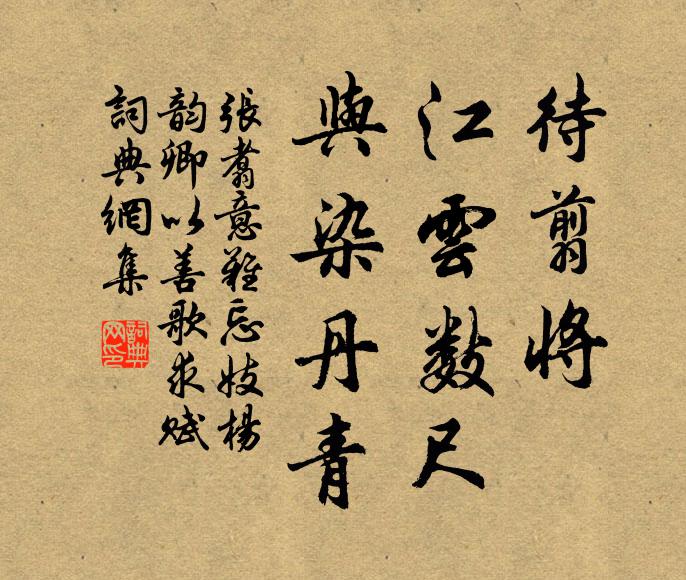 待翦將
江雲數尺
與染丹青
張翥意難忘妓楊
韵卿以善歌求賦
詞典網集
詞典网印